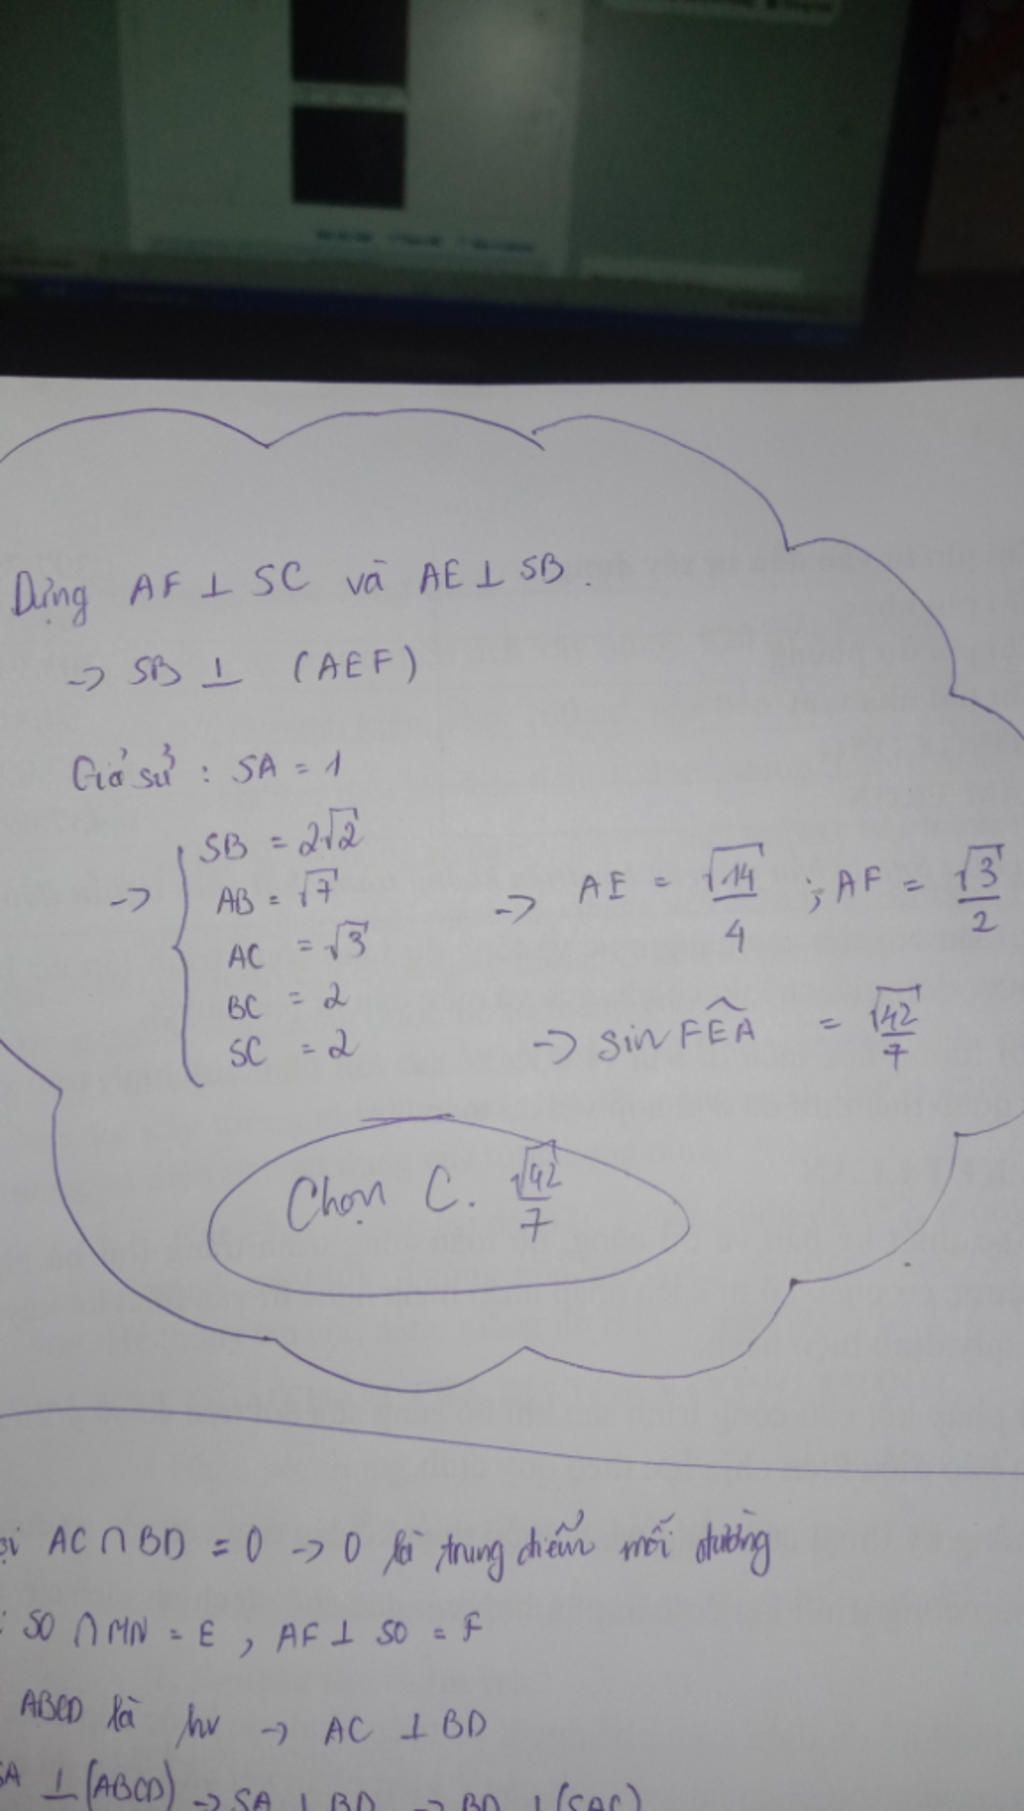 Dựng AF ⊥ SC và AE ⊥ SB.
→ SB ⊥ (AEF)
Giả sử : SA = 1
→ { SB = 2√2
AB = √7
AC = √3
BC = 2
SC = 2
→ AE = √14/4 ; AF = √3/2
→ sin FÊA = √42/7
Chọn C. √42/7
AC ∩ BD = O → O là trung điểm mỗi đường
: SO ∩ MN = E , AF ⊥ SO = F
ABCD là hv → AC ⊥ BD
SA ⊥ (ABCD) → SA ⊥ BD → BD ⊥ (SAC)